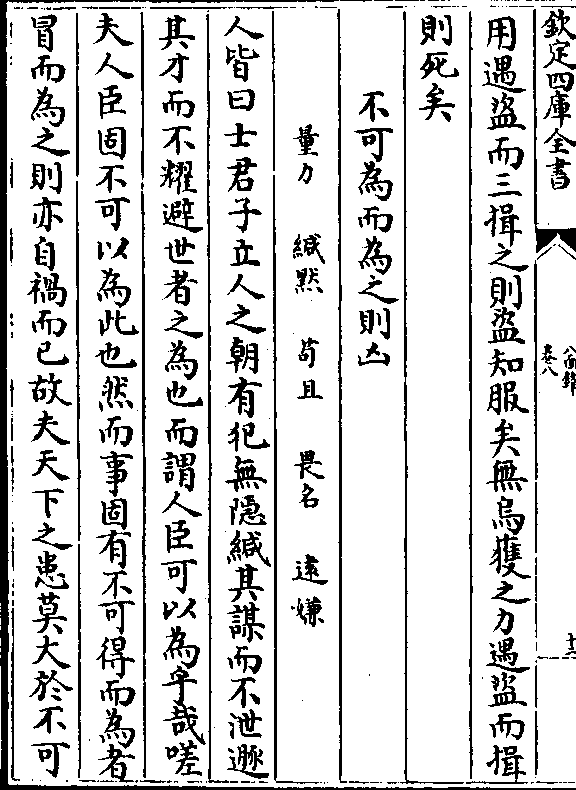 欽定四庫全書
八面鋒
卷八
十三
用遇盜而三揖之則盜知服矣無烏獲之力遇盜而揖
則死矣
不可為而為之則凶
量力　緘默　苟且　畏名　遠嫌
人皆曰士君子立人之朝有犯無隠緘其謀而不泄遯
其才而不耀避世者之為也而謂人臣可以為乎哉嗟
夫人臣固不可以為此也然而事固有不可得而為者
冒而為之則亦自禍而已故夫天下之患莫大於不可